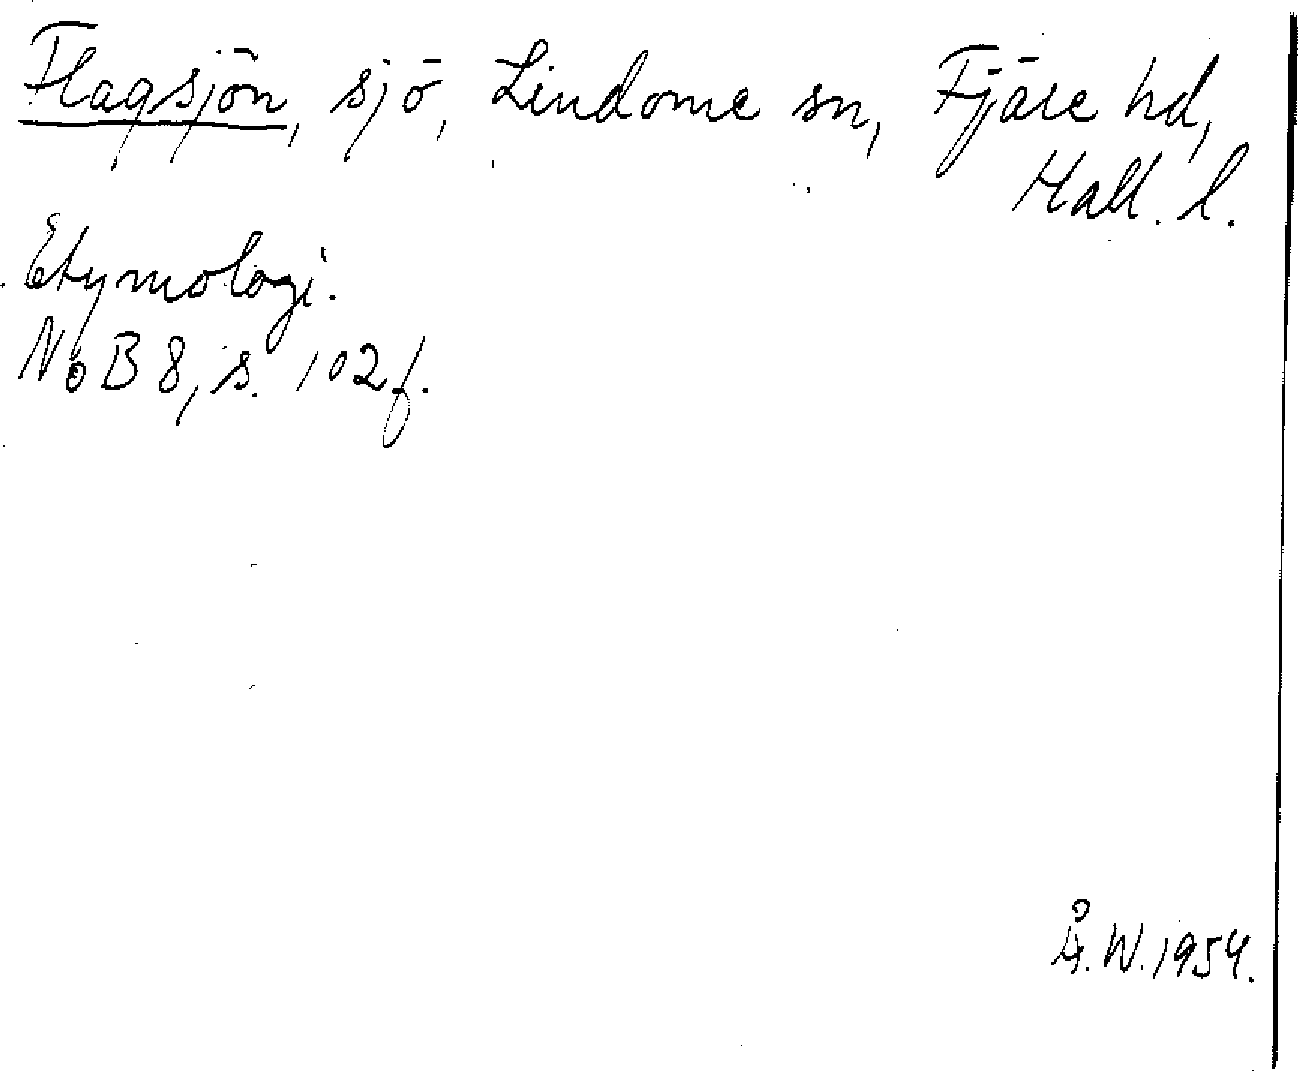 Flagsjön, sjö, Lindome sn, Fjäre hd,
Hall. l.
Etymologi.
NoB 8, s. 102 f.
Å. W. 1954.